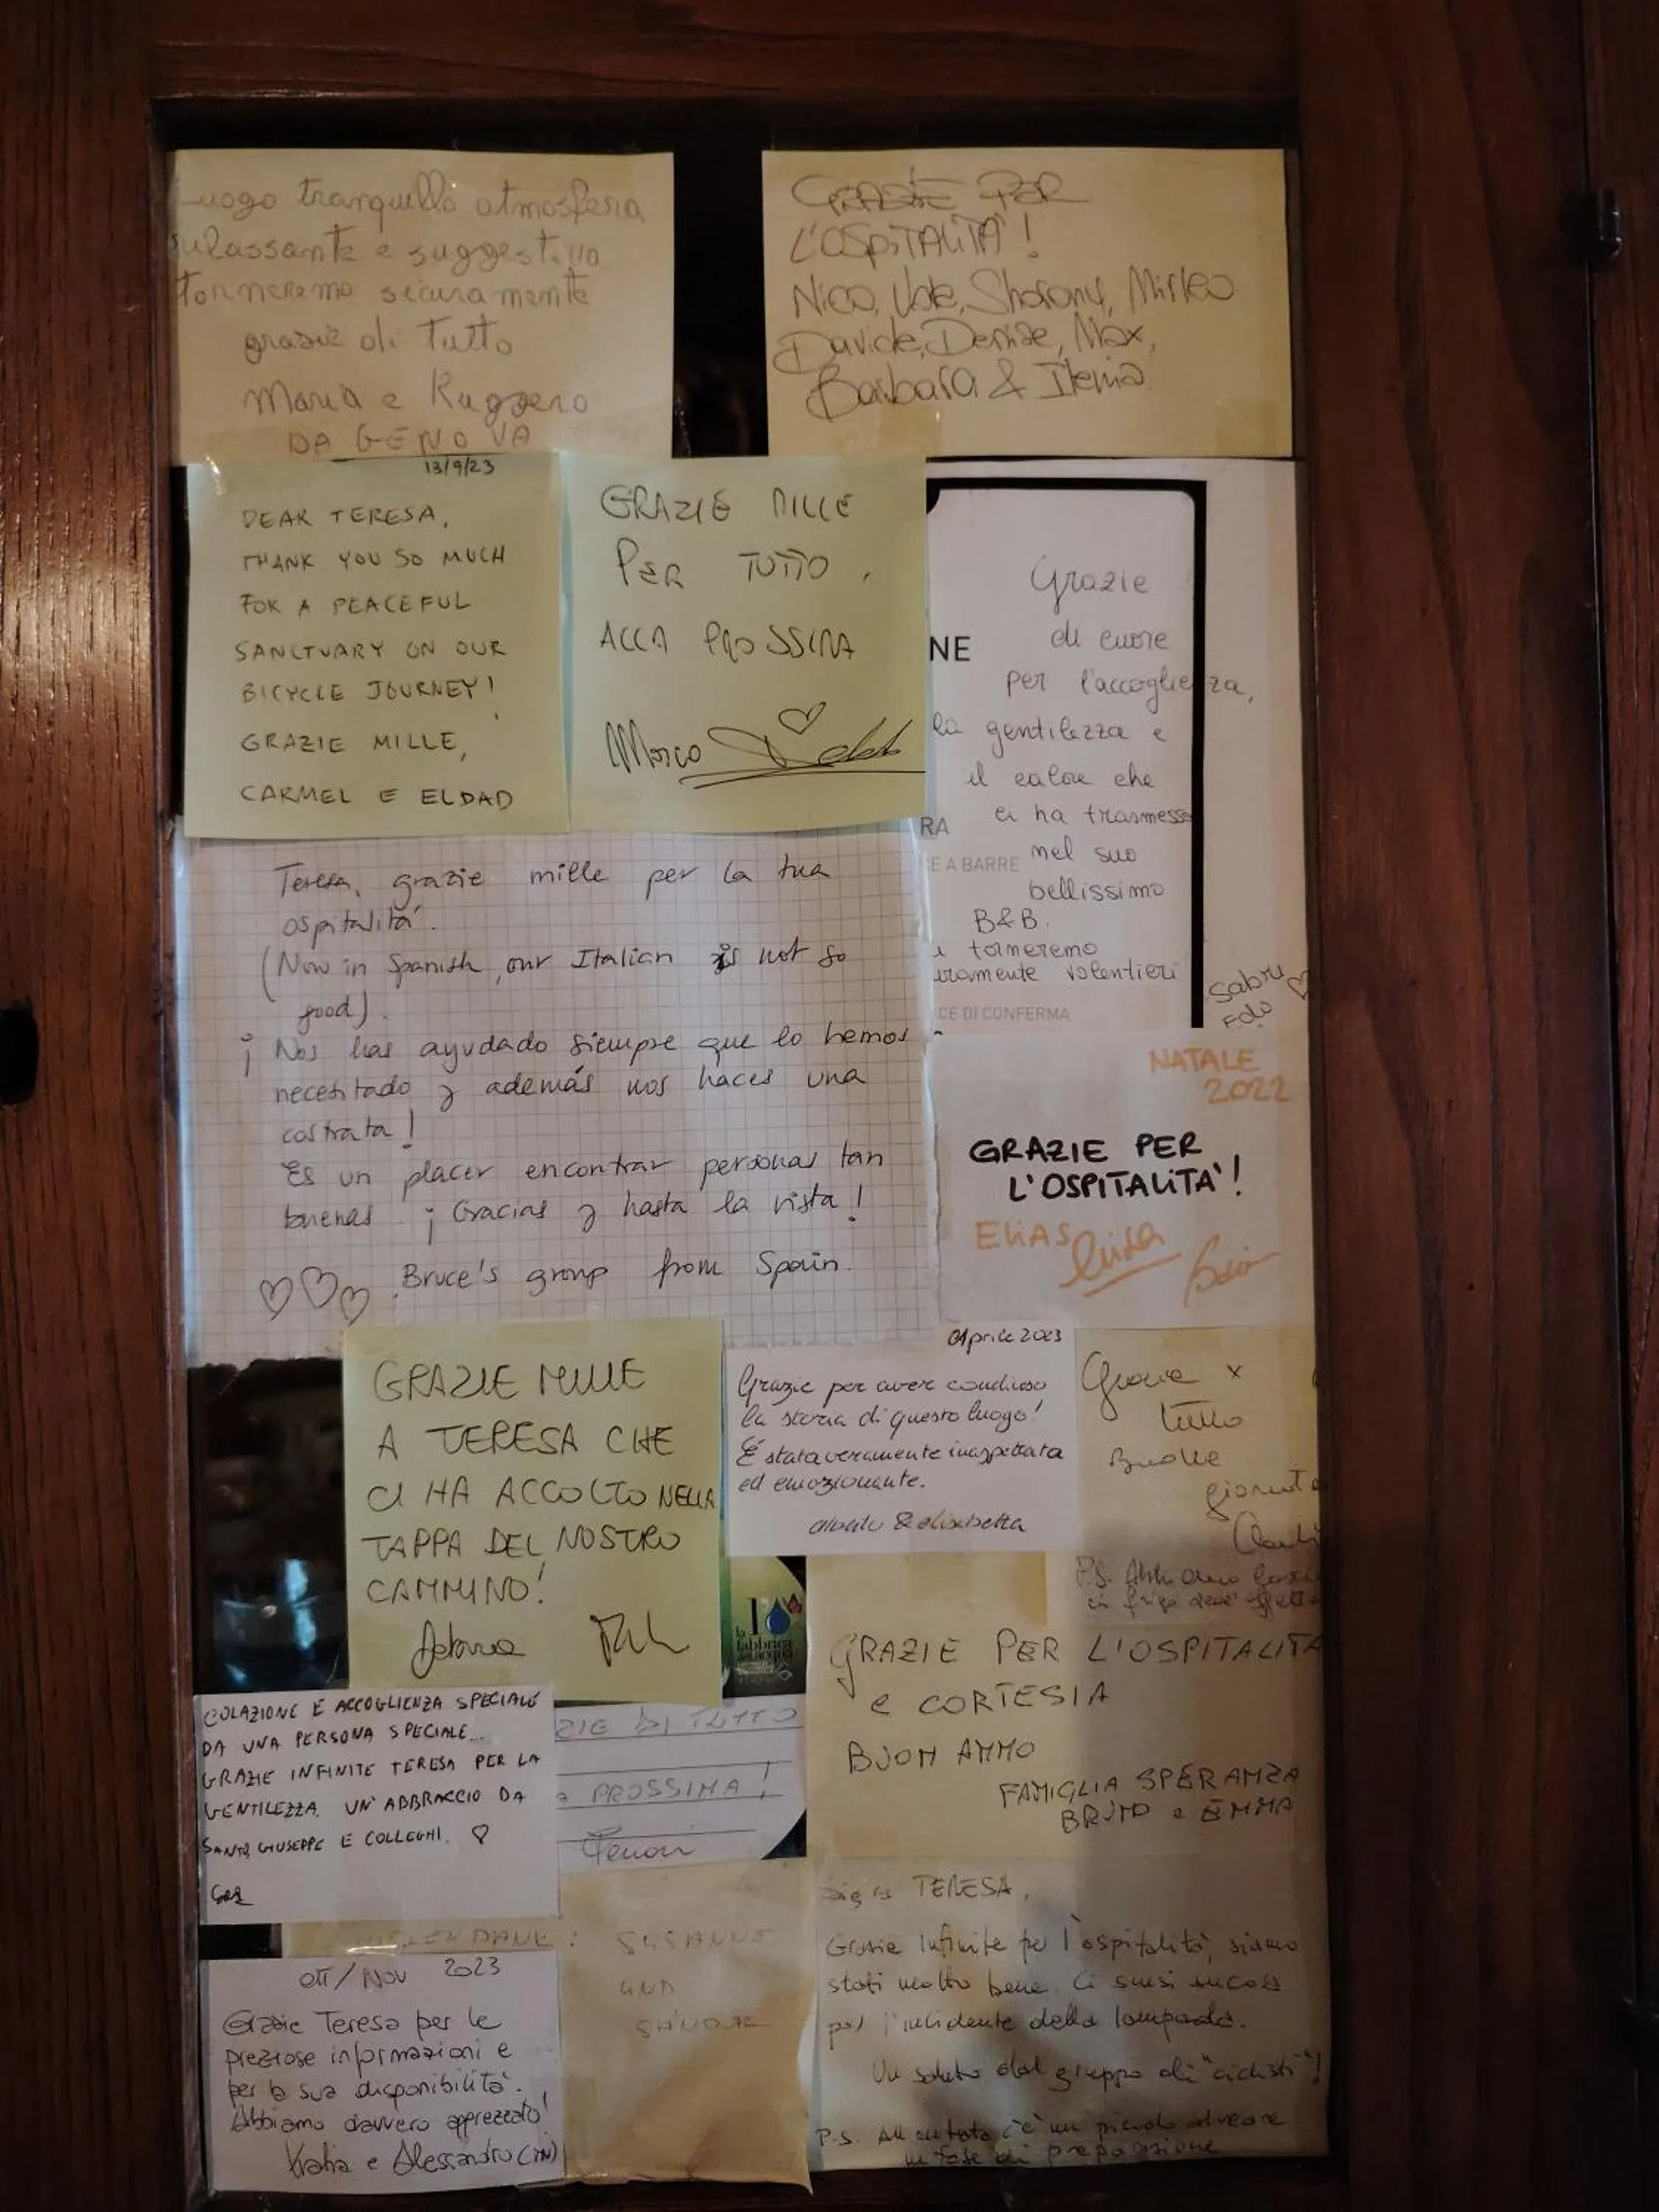 Luogo tranquillo atmosfera
rilassante e suggestivo
torneremo sicuramente
grazie di tutto
Maria e Ruggero
DA GENOVA
GRAZIE PER
L'OSPITALITÀ!
Nico, Sharony, Mirko
Davide, Denise, Max,
Barbara & Ilenia
13/9/23
DEAR TERESA,
THANK YOU SO MUCH
FOR A PEACEFUL
SANCTUARY ON OUR
BICYCLE JOURNEY!
GRAZIE MILLE,
CARMEL E ELDAD
GRAZIE MILLE
PER TUTTO,
ALLA PROSSIMA
Marco
Grazie
di cuore
per l'accoglienza,
la gentilezza e
il calore che
ci ha trasmesso
nel suo
bellissimo
B&B.
torneremo
volentieri
Sabri
Edo
NE
RA
E A BARRE
CE DI CONFERMA
Teresa, grazie mille per la tua
ospitalitá.
(Now in Spanish, our Italian is not so
good).
¡Nos has ayudado siempre que lo hemos
necesitado y además nos haces una
costrata!
Es un placer encontrar personas tan
buenas. ¡Gracias y hasta la vista!
Bruce's group from Spain.
NATALE
2022
GRAZIE PER
L'OSPITALITA'!
ELIAS
Luisa
GRAZIE MILLE
A TERESA CHE
CI HA ACCOLTO NELLA
TAPPA DEL NOSTRO
CAMMINO!
Aprile 2023
Grazie per aver condiviso
la storia di questo luogo!
É stata veramente inaspettata
ed emozionante.
Alberto & Elisabetta
Grazie x
tutto
Buone
giornate
P.S. Abbiamo
in frigo
la fabbrica
dell'acqua
GRAZIE PER L'OSPITALITÀ
e CORTESIA
BUON ANNO
FAMIGLIA SPERANZA
BRUNO e EMMA
COLAZIONE E ACCOGLIENZA SPECIALE
DA UNA PERSONA SPECIALE...
GRAZIE INFINITE TERESA PER LA
GENTILEZZA. UN ABBRACCIO DA
GIUSEPPE E COLLEGHI.
ZIE DI TUTTO
PROSSIMA!
VIELEN DANK: SUSANNE
UND
OTT/NOV 2023
Grazie Teresa per le
preziose informazioni e
per la sua disponibilità.
Abbiamo davvero apprezzato!
Katia e Alessandro (TN)
Sig.ra TERESA,
Grazie infinite per l'ospitalità, siamo
stati molto bene. Ci scusi ancora
per l'incidente della lampada.
Un saluto dal gruppo di "ciclisti"!
P.S. All'entrata c'è un piccolo alveare
in fase di preparazione